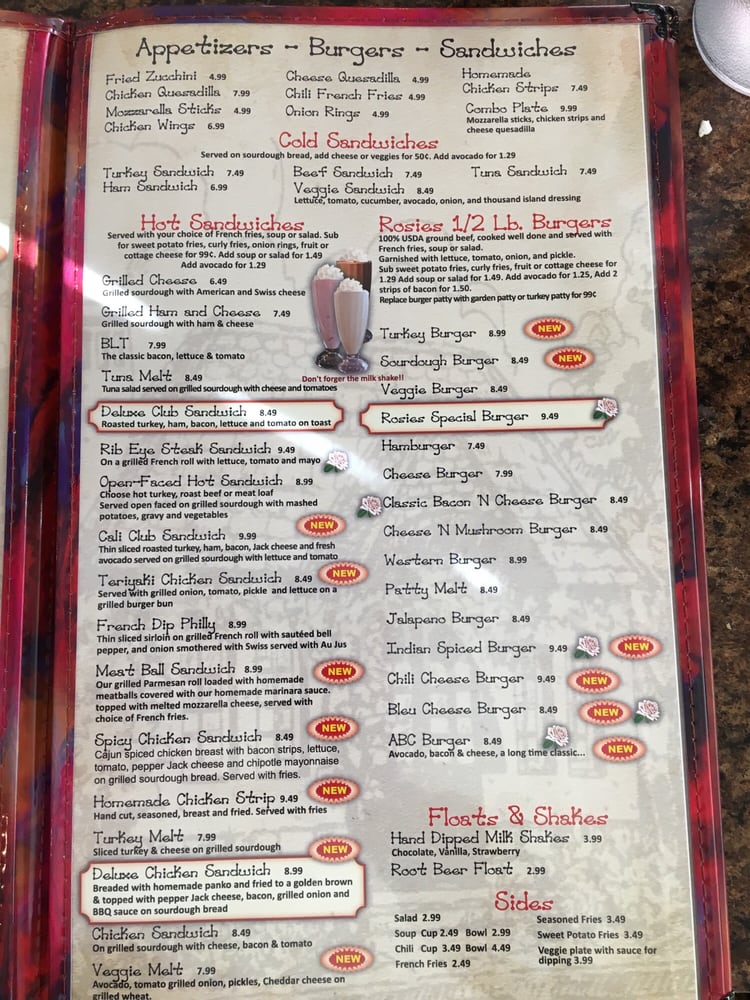 Appetizers - Burgers - Sandwiches
Fried Zucchini 4.99
Chicken Quesadilla 7.99
Mozzarella Sticks 4.99
Chicken Wings 6.99
Cheese Quesadilla 4.99
Chili French Fries 4.99
Onion Rings 4.99
Homemade
Chicken Strips 7.49
Combo Plate 9.99
Mozzarella sticks, chicken strips and
cheese quesadilla
Cold Sandwiches
Served on sourdough bread, add cheese or veggies for 50¢. Add avocado for 1.29
Turkey Sandwich 7.49
Ham Sandwich 6.99
Beef Sandwich 7.49
Tuna Sandwich 7.49
Veggie Sandwich 8.49
Lettuce, tomato, cucumber, avocado, onion, and thousand island dressing
Hot Sandwiches
Served with your choice of French fries, soup or salad. Sub
for sweet potato fries, curly fries, onion rings, fruit or
cottage cheese for 99¢. Add soup or salad for 1.49
Add avocado for 1.29
Grilled Cheese 6.49
Grilled sourdough with American and Swiss cheese
Grilled Ham and Cheese 7.49
Grilled sourdough with ham & cheese
BLT 7.99
The classic bacon, lettuce & tomato
Tuna Melt 8.49
Tuna salad served on grilled sourdough with cheese and tomatoes
Deluxe Club Sandwich 8.49
Roasted turkey, ham, bacon, lettuce and tomato on toast
Rib Eye Steak Sandwich 9.49
On a grilled French roll with lettuce, tomato and mayo
Open-Faced Hot Sandwich 8.99
Choose hot turkey, roast beef or meat loaf
Served open faced on grilled sourdough with mashed
potatoes, gravy and vegetables
NEW
Cali Club Sandwich 9.99
Thin sliced roasted turkey, ham, bacon, Jack cheese and fresh
avocado served on grilled sourdough with lettuce and tomato
Teriyaki Chicken Sandwich 8.49 NEW
Served with grilled onion, tomato, pickle and lettuce on a
grilled burger bun
French Dip Philly 8.99
Thin sliced sirloin on grilled French roll with sautéed bell
pepper, and onion smothered with Swiss served with Au Jus
Meat Ball Sandwich 8.99 NEW
Our grilled Parmesan roll loaded with homemade
meatballs covered with our homemade marinara sauce.
topped with melted mozzarella cheese, served with
choice of French fries.
NEW
Spicy Chicken Sandwich 8.49
Cajun spiced chicken breast with bacon strips, lettuce,
tomato, pepper Jack cheese and chipotle mayonnaise
on grilled sourdough bread. Served with fries.
NEW
Homemade Chicken Strip 9.49
Hand cut, seasoned, breast and fried. Served with fries
Turkey Melt 7.99
Sliced turkey & cheese on grilled sourdough
NEW
Deluxe Chicken Sandwich 8.99
Breaded with homemade panko and fried to a golden brown
& topped with pepper Jack cheese, bacon, grilled onion and
BBQ sauce on sourdough bread
Chicken Sandwich 8.49
On grilled sourdough with cheese, bacon & tomato
NEW
Veggie Melt 7.99
Avocado, tomato grilled onion, pickles, Cheddar cheese on
grilled wheat.
Don't forget the milk shake!!
Rosies 1/2 Lb. Burgers
100% USDA ground beef, cooked well done and served with
French fries, soup or salad.
Garnished with lettuce, tomato, onion, and pickle.
Sub sweet potato fries, curly fries, fruit or cottage cheese for
1.29 Add soup or salad for 1.49. Add avocado for 1.25, Add 2
strips of bacon for 1.50.
Replace burger patty with garden patty or turkey patty for 99¢
Turkey Burger 8.99 NEW
Sourdough Burger 8.49 NEW
Veggie Burger 8.49
Rosies Special Burger 9.49
Hamburger 7.49
Cheese Burger 7.99
Classic Bacon 'N Cheese Burger 8.49
Cheese 'N Mushroom Burger 8.49
Western Burger 8.99
Patty Melt 8.49
Jalapeno Burger 8.49
Indian Spiced Burger 9.49 NEW
Chili Cheese Burger 9.49 NEW
Bleu Cheese Burger 8.49 NEW
ABC Burger 8.49 NEW
Avocado, bacon & cheese, a long time classic...
Floats & Shakes
Hand Dipped Milk Shakes 3.99
Chocolate, Vanilla, Strawberry
Root Beer Float 2.99
Sides
Salad 2.99
Soup Cup 2.49 Bowl 2.99
Chili Cup 3.49 Bowl 4.49
French Fries 2.49
Seasoned Fries 3.49
Sweet Potato Fries 3.49
Veggie plate with sauce for
dipping 3.99